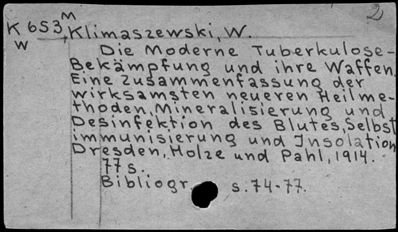 M 2
K 653, Klimaszewski, W.
W
Die Moderne Tuberkulose-
Bekämpfung und ihre Waffen.
Eine Zusammenfassung der
wirksamsten neueren Heilme-
thoden, Mineralisierung und
Desinfektion des Blutes, Selbst
immunisierung und Insolation
Dresden, Holze und Pahl, 1914.
77 s.
Bibliogr. s. 74-77.